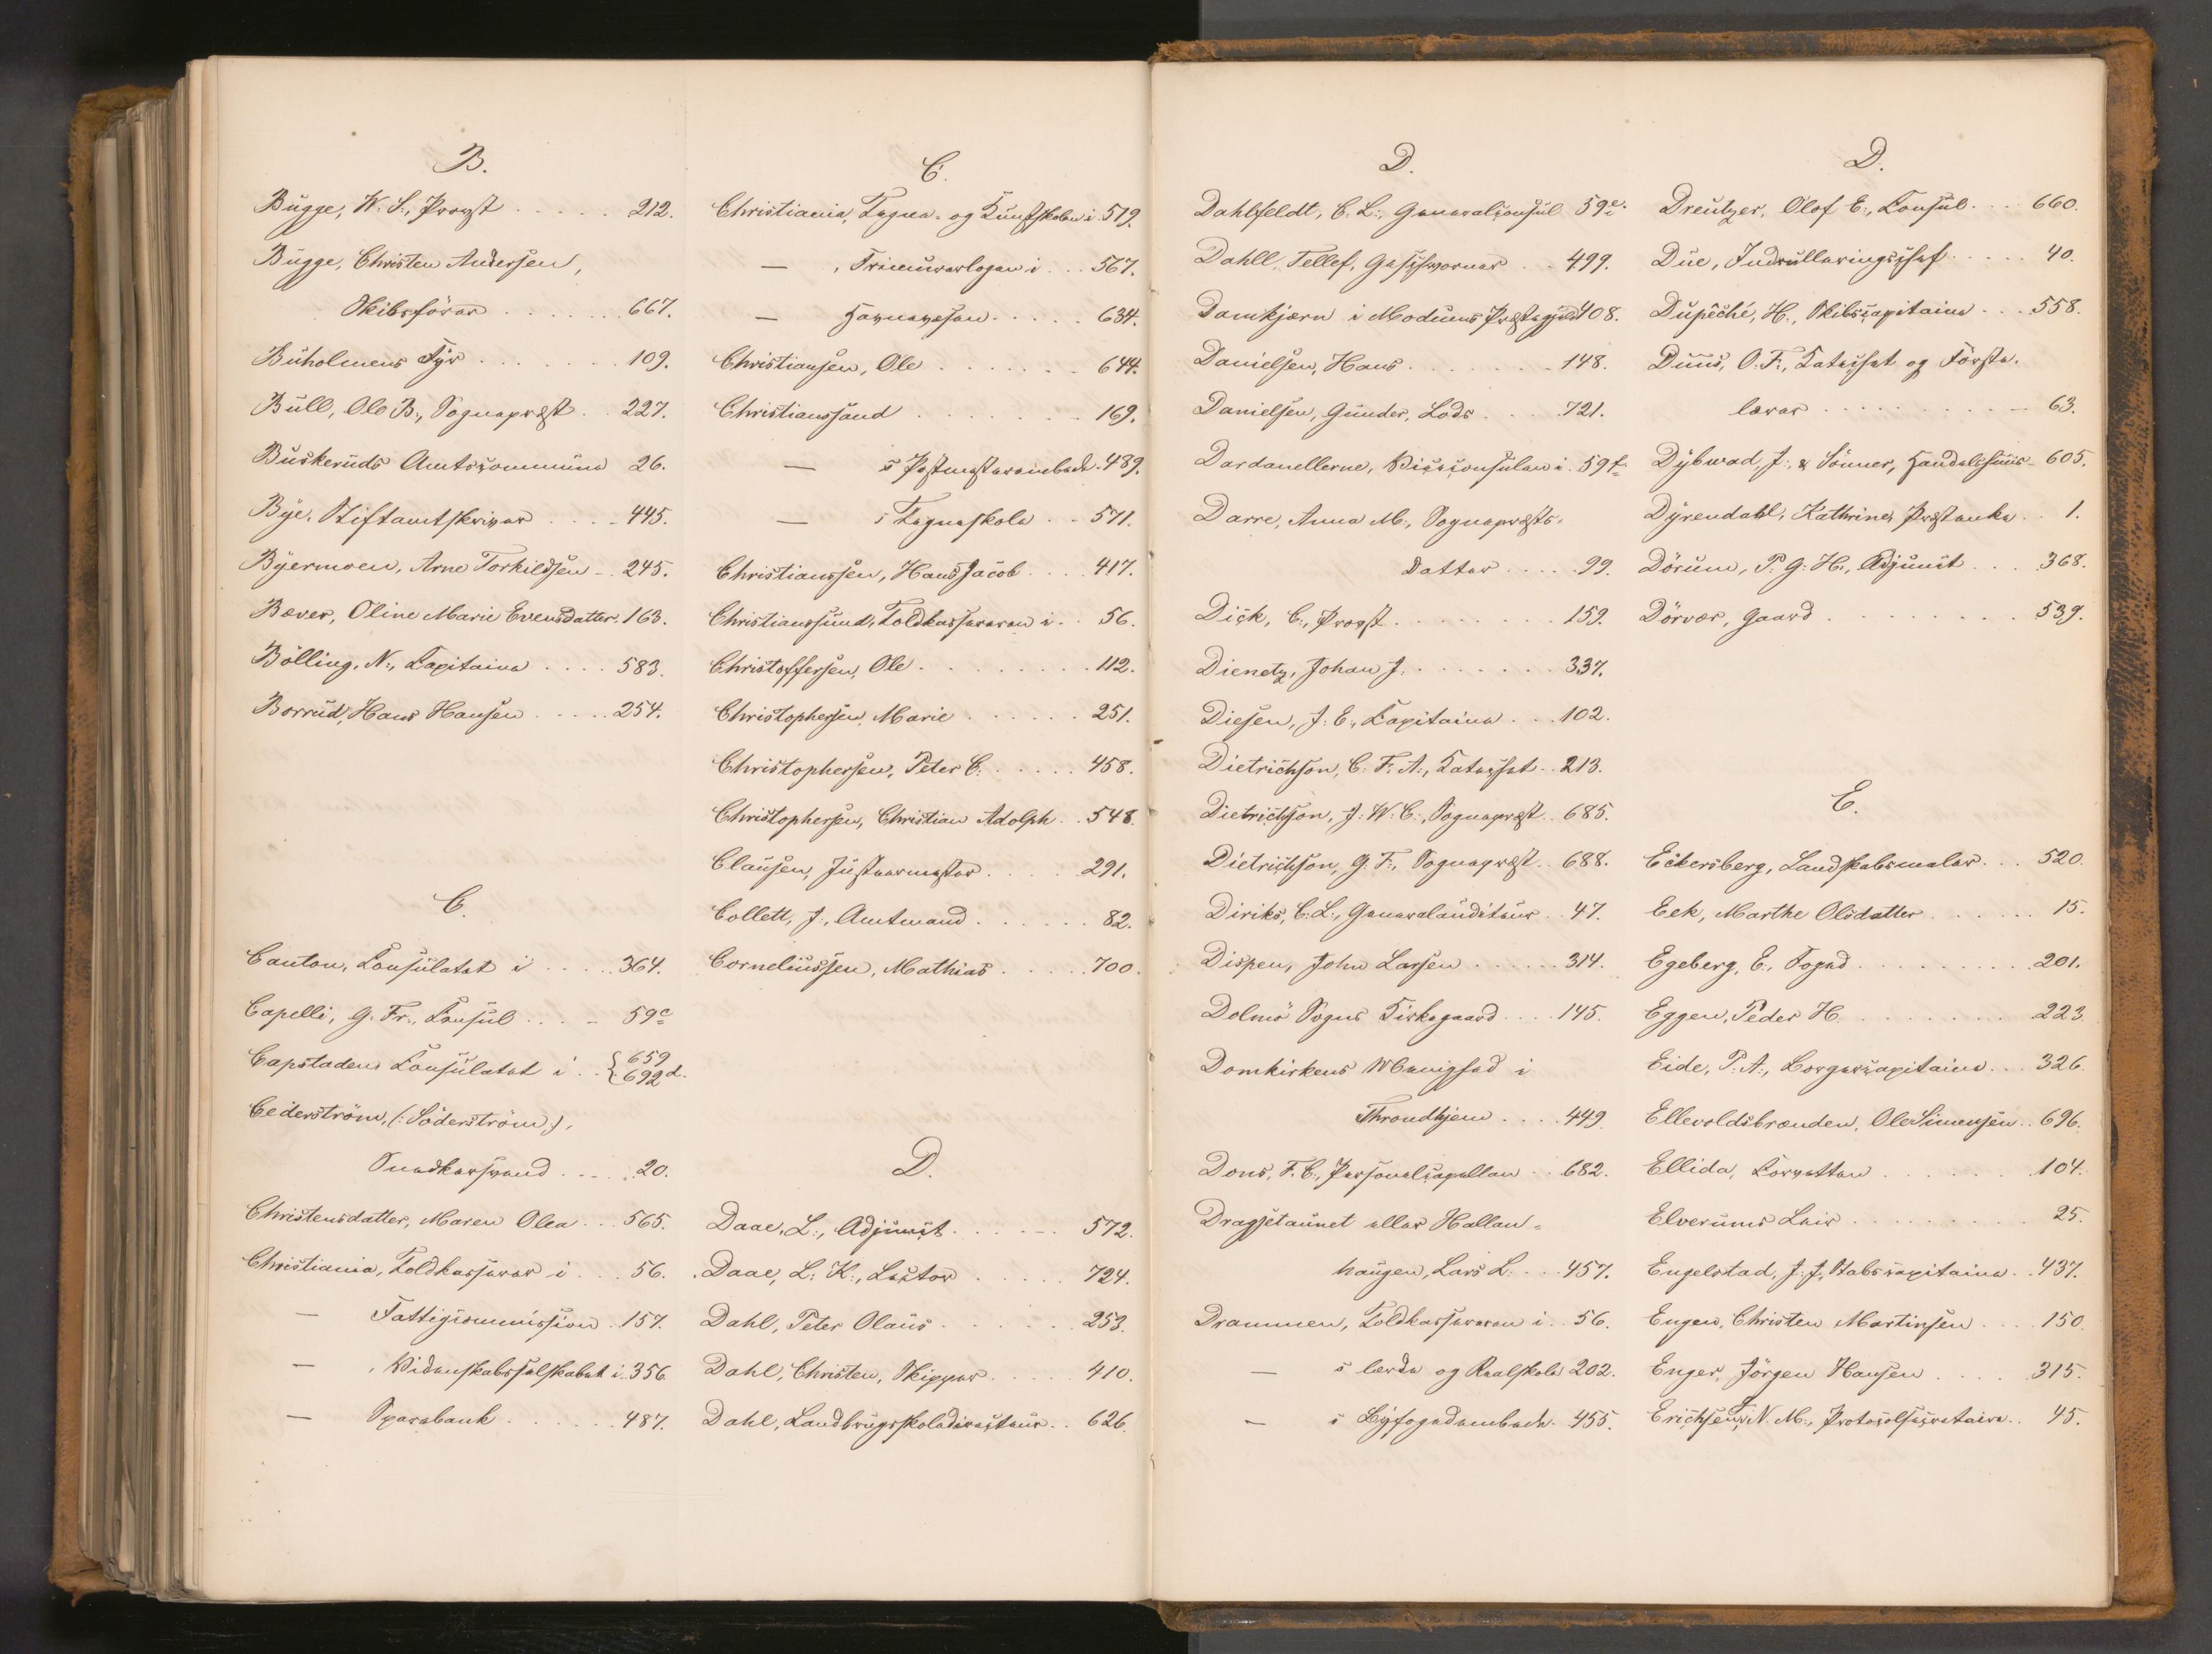 B.
Bugge, W. S., Provst . . . . . 212.
Bugge, Christen Andersen,
Skibsförer . . . . . . 667.
Buholmens Fyr . . . . . . . 109.
Bull, Ole B., Sognepræst . . 227.
Buskeruds Amtscommune 26.
Bye, Stiftamtskriver . . . . 445.
Byermoen, Arne Torkildsen . . 245.
Bæver, Oline Marie Evensdatter. 163.
Bölling, N., Capitaine . . . . 583.
Borrud, Hans Hansen . . . . . 254.
C.
Canton, Consulatet i . . . . 364.
Capelli, G. Fr., Consul . . . . 59c
Capstaden, Consulatet i . . { 659 692d.
Cederström, (: Söderström:),
Snedkersvend . . . . . 20.
Christensdatter, Maren Olea . . 565.
Christiania, Toldkasserer i . . . 56.
— Fattigcommission . 157.
— , Videnskabsselskabet i . 356
— Sparebank . . . . . . 487.
C.
Christiania, Tegne- og Kunstskolen i . 519.
— , Frimurerlogen i . . . 567.
— Havnevæsen . . . . . 634.
Christiansen, Ole . . . . . . . 644.
Christianssand . . . . . . . . 169.
— s Postmesterembede . 489.
— s Tegneskole . . 571.
Christianssen, Hans Jacob . . . . 417.
Christianssund, Toldkassereren i . . 56.
Christoffersen, Ole . . . . . . . . 112.
Christophersen, Marie . . . . . . 251.
Christophersen, Peter C. . . . . . 458.
Christophersen, Christian Adolph . . 548.
Clausen, Justeermester . . . . . 291.
Collett, J., Amtmand . . . . . . 82.
Corneliussen, Mathias . . . . . 700.
D.
Daae, L., Adjunct . . . . . . 572.
Daae, L. K., Lector . . . . . . 724.
Dahl, Peter Olaus . . . . . . . 253.
Dahl, Christen, Skipper . . . . . 410.
Dahl, Landbrugsskoledirecteur . . 626.
D.
Dahlfeldt, C. L., Generalconsul 59e.
Dahll, Tellef, Geschworner . . 499.
Damkjærn i Modums Præstegjeld 408.
Danielsen, Hans . . . . . . . 148.
Danielsen, Gunder, Lods . . . . 721.
Dardanellerne, Viceconsulen i . 59f.
Darre, Anna M., Sognepræsts-
Datter . . . . . 99.
Dick, C., Provst . . . . . . . . 159.
Dienetz, Johan J. . . . . . . . 337.
Diesen, J. E., Capitaine . . . 102.
Dietrichson, C. F. A., Catechet . . 213.
Dietrichson, J. W. C., Sognepræst . . 685.
Dietrichson, G. F., Sognepræst . . 688.
Diriks, C. L., Generalauditeur . . 47.
Dispen, John Larsen . . . . . . 314.
Dolmö Sogns Kirkegaard . . . . 145.
Domkirkens Menighed i
Throndhjem . . . . 449.
Dons, F. C., Personelcapellan . . 682.
Dragsetaunet eller Hallan-
haugen, Lars L. . . . . 457.
Drammen, Toldkassereren i . . 56.
— s lærde og Realskole 202.
— s Byfogedembede . 455.
D.
Dreutzer, Olof E., Consul . . . 660.
Due, Indrulleringschef . . . . . 40.
Dupêché, H., Skibscapitaine . . . 558.
Duus, O. F., Catechet og Förste-
lærer . . . . . . . . . 63.
Dybwad, J. & Sönner, Handelshuus . 605.
Dyrendahl, Kathrine, Præsteenke . . 1.
Dörum, P. G. H., Adjunct . . . 368.
Dörvær, Gaard . . . . . . . . . 539.
E.
Eckersberg, Landskabsmaler . . . 520.
Eek, Marthe Olsdatter . . . . . . 15.
Egeberg, E., Foged . . . . . . . . 201.
Eggen, Peder H. . . . . . . . . 223.
Eide, P. A., Borgercapitaine . . . 326.
Ellevoldsbrænden, Ole Simensen . . 696.
Ellida, Corvetten . . . . . . . 104.
Elverums Leir . . . . . . . . . 25.
Engelstad, J. J., Stabscapitaine . . 437.
Engen, Christen Martinsen . . . . 150.
Enger, Jörgen Hansen . . . . . 315.
Erichsen, N. M., Protocolsecretaire . . 45.